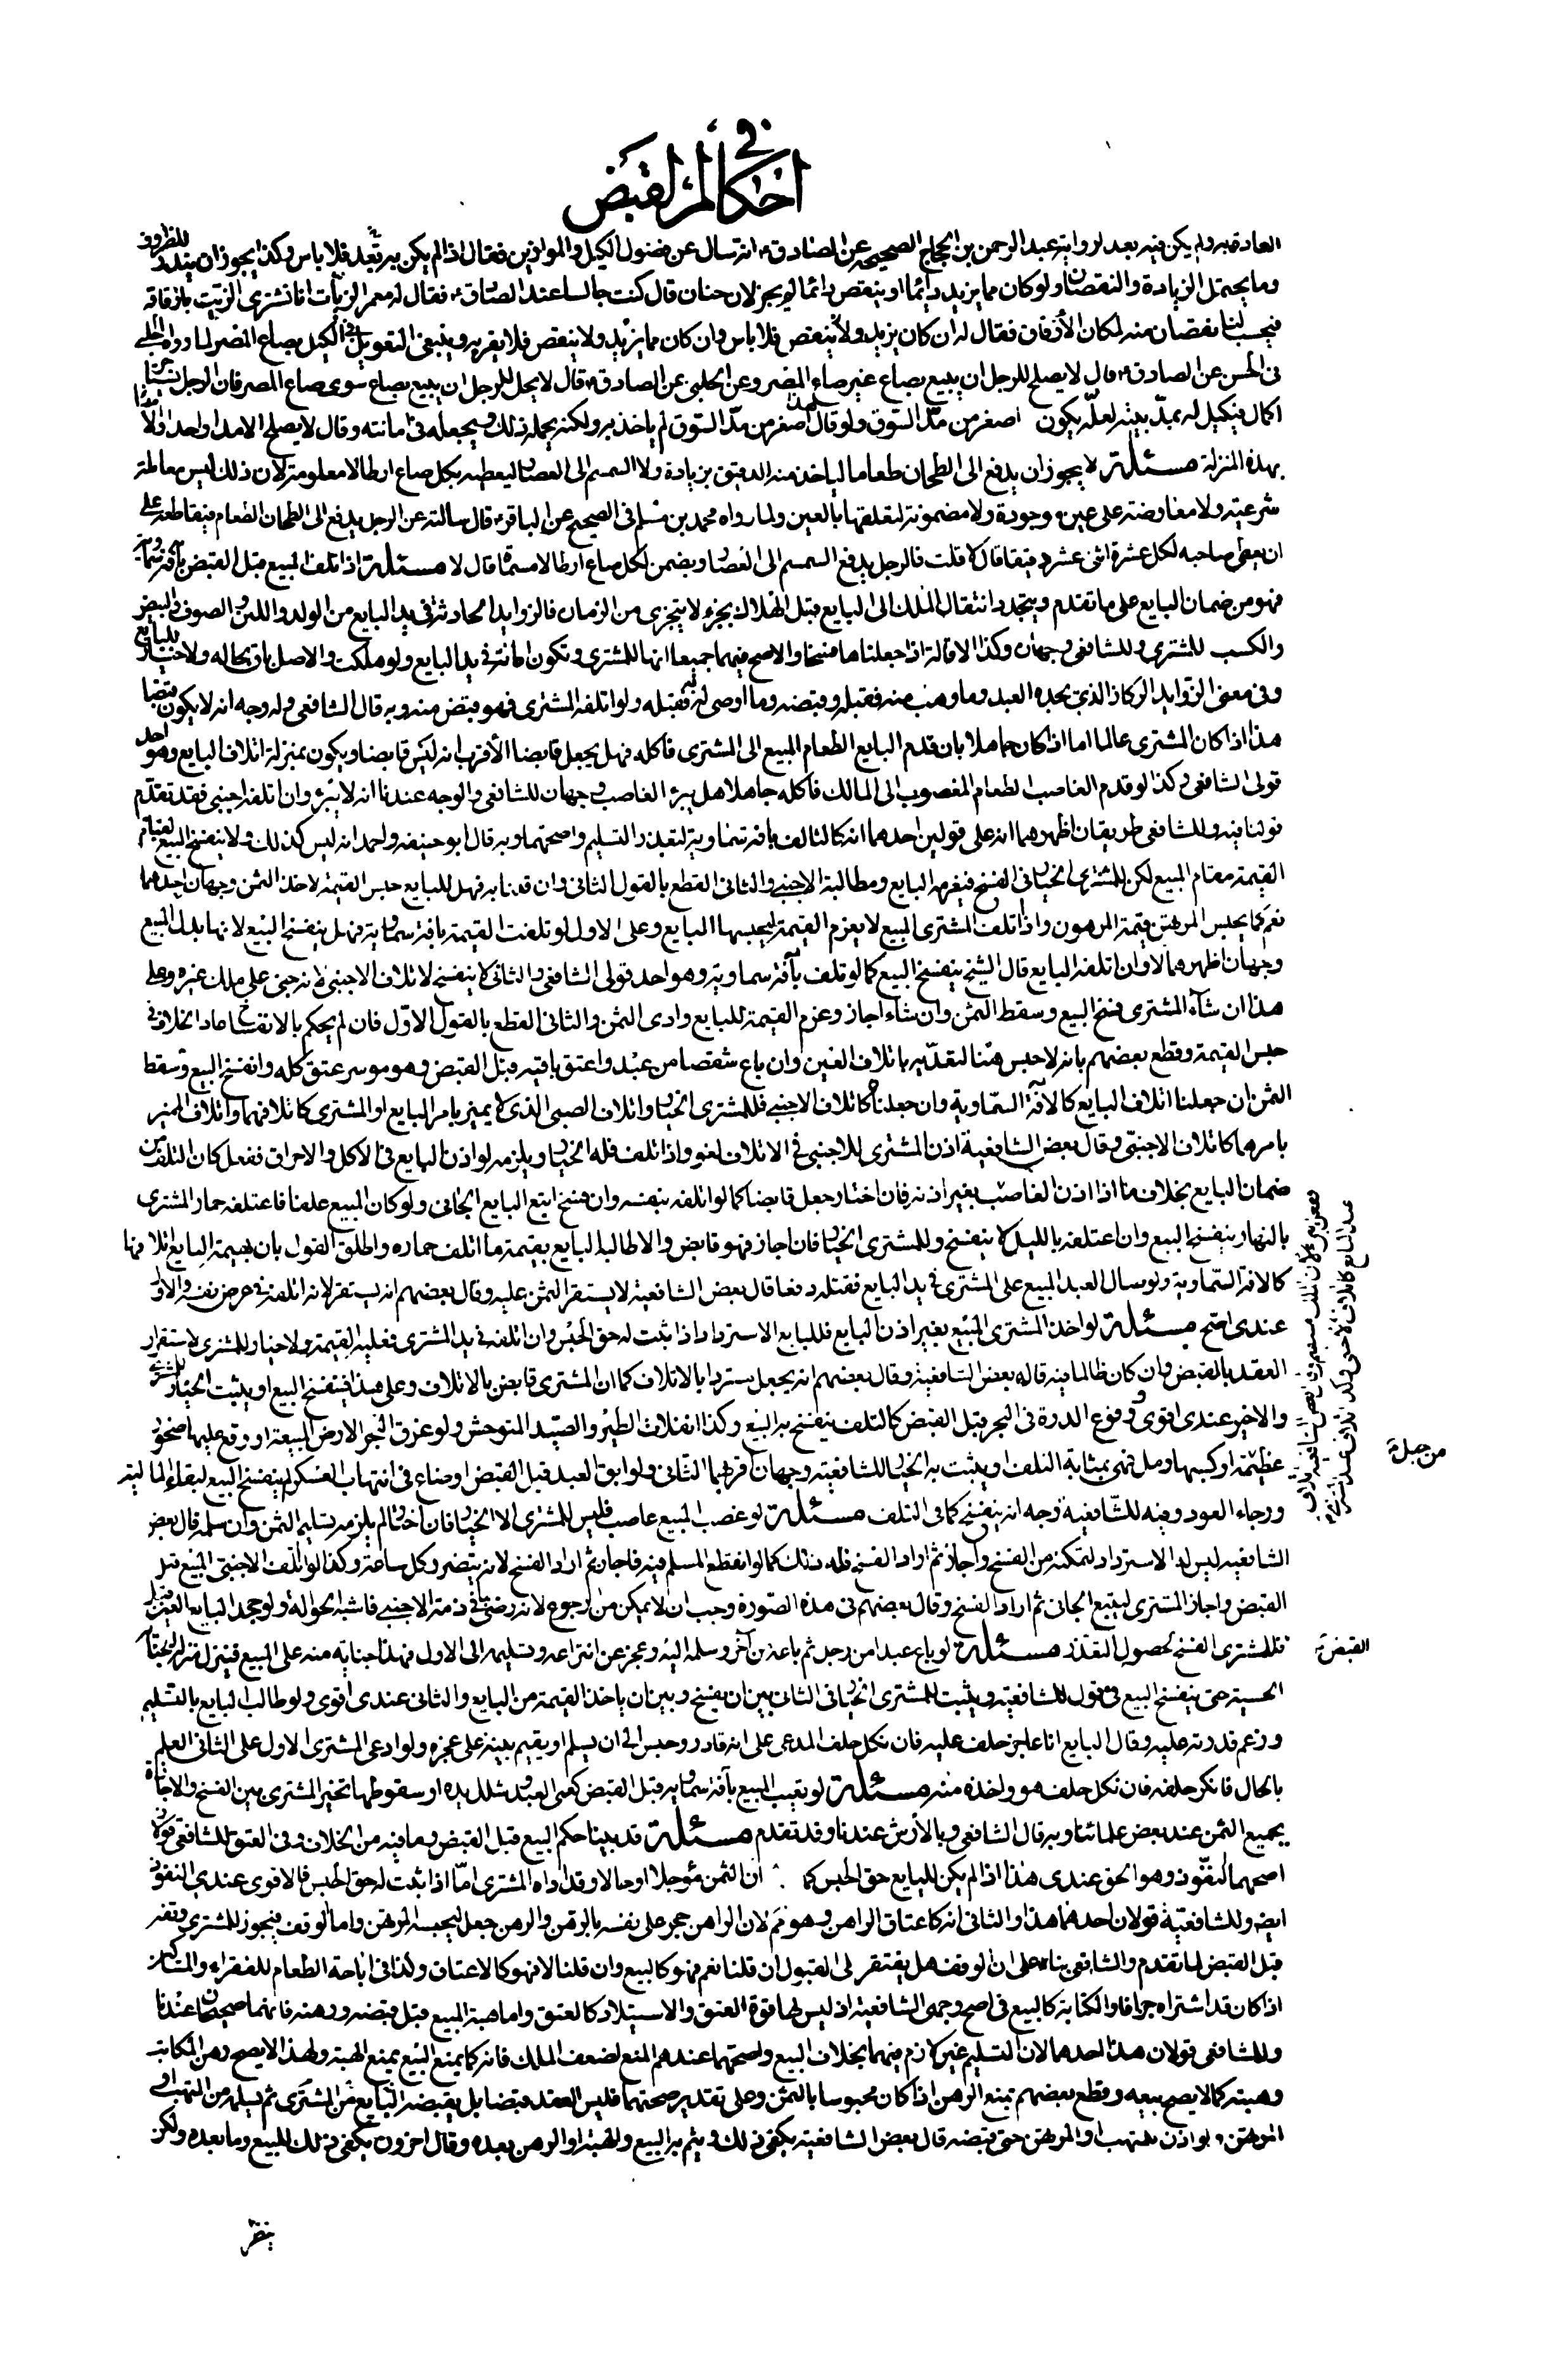 في
احكام القبض
العادة به ولم يكن فيه بعد لرواية عبد الرحمن بن الحجاج الصحيحة عن الصادق ع انه سال عن فضول الكيل والموازين فقال اذا لم يكن فيه تعد فلا باس وكذا يجوز ان يندر للظروف
وما يحتمل الزيادة والنقصان ولو كان مما يزيد دائما او ينقص دائما لم يجز لان حنان قال كنت جالسا عند الصادق ع فقال له معمر الزيات انا نشتري الزيت بازقاقه
فيحسب لنا نقصان منه لمكان الأزقاق فقال له ان كان يزيد وينقص فلا باس وان كان مما يزيد ولا ينقص فلا تقربه وينبغي التعويل في الكيل بصاع المصر لما رواه الحلبي
في الحسن عن الصادق ع قال لا يصلح للرجل ان يبيع بصاع غير صاع المصر وعن الحلبي عن الصادق ع قال لا يحل للرجل ان يبيع بصاع سوى صاع المصر فان الرجل يستاجر
الكمال فيكيل له بمدّ بيته لعلّه يكون اصغر من مدّ السّوق ولو قال هذا اصغر من مدّ السّوق لم ياخذ به ولكنه يحمله ذلك ويجعله في امانته وقال لا يصلح الا مدا واحدا والامنا
بهذه المنزلة مسئلة لا يجوز ان يدفع الى الطحان طعاما لياخذ منه الدقيق بزيادة ولا السمسم الى العصار ليعطيه بكل صاع ارطالا معلومة لان ذلك ليس معاملة
شرعية ولا معاوضة على عين موجودة ولا مضمونة لتعلقها بالعين ولما رواه محمد بن مسلم في الصحيح عن الباقر ع قال سالته عن الرجل يدفع الى الطحان الطعام فيقاطعه على
ان يعطي صاحبه لكل عشرة اثنى عشر دقيقا قال لا قلت فالرجل يدفع السمسم الى العصار ويضمن لكل صاع ارطالا مسماة قال لا مسئلة اذا تلف المبيع قبل القبض بآفة سماوية
فهو من ضمان البايع على ما تقدم ويتجدد انتقال الملك الى البايع قبل الهلاك بجزء لا يتجزى من الزمان فالزوايد الحادثة في يد البايع من الولد واللبن والصوف والبيض
والكسب للمشتري وللشافعي وجهان وكذا الاقالة اذا جعلناها فسخا والاصح فيهما جميعا انها للمشتري وتكون امانة في يد البايع ولو هلكت والاصل باق بحاله ولا خيار للبايع
وفي معنى الزوايد الركاز الذي يجده العبد وما وهب منه فقبله وقبضه وما اوصى له به فقبله ولو اتلفه المشتري فهو قبض منه وبه قال الشافعي وله وجه انه لا يكون قبضا
هذا اذا كان المشتري عالما اما اذا كان جاهلا بان قدم البايع الطعام المبيع الى المشتري فاكله فهل يجعل قابضا الأقرب انه ليس قابضا ويكون بمنزلة اتلاف البايع وهو احد
قولي الشافعي وكذا لو قدم الغاصب الطعام المغصوب الى المالك فاكله جاهلا هل يبرء الغاصب وجهان للشافعي والوجه عندنا انه لا يبرء وان اتلفه اجنبي فقد تقدم
قولنا فيه وللشافعي طريقان اظهرهما انه على قولين احدهما انه كالتالف بافة سماوية لتعذر التسليم واصحهما وبه قال ابو حنيفة واحمد انه ليس كذلك ولا ينفسخ البيع لقيام
القيمة مقام المبيع لكن للمشتري الخيار في الفسخ فيغرم البايع ومطالبة الاجنبي والثاني القطع بالقول الثاني وان قلنا به فهل للبايع حبس القيمة لاخذ الثمن وجهان احدهما
نعم كما يحبس المرتهن قيمة المرهون واذا تلف المشتري المبيع لا يغرم القيمة ليحبسها البايع وعلى الاول لو تلفت القيمة بافة سماوية فهل ينفسخ البيع لانها بدل المبيع
وجهان اظهرهما لا وان اتلفه البايع قال الشيخ ينفسخ البيع كما لو تلف بآفة سماوية وهو احد قولي الشافعي والثاني لا ينفسخ لاتلاف الاجنبي لانه جنى على ملك غيره وعلى
هذا ان شاء المشتري فسخ البيع وسقط الثمن وان شاء اجاز وغرم القيمة للبايع وادى الثمن والثاني القطع بالقول الاوّل فان لم يحكم بالانفساخ عاد الخلاف في
حبس القيمة وقطع بعضهم بانه لا حبس هنا لتعدّيه باتلاف العين وان باع شقصا من عبد واعتق باقيه قبل القبض وهو موسر عتق كله وانفسخ البيع وسقط
الثمن ان جعلنا اتلاف البايع كالافة السّماوية وان جعلناه كاتلاف الاجنبي فللمشتري الخيار واتلاف الصبي الذي لا يميز بامر البايع او المشتري كاتلافهما واتلاف المميز
بامرهما كاتلاف الاجنبيّ وقال بعض الشافعية اذن المشتري للاجنبي في الاتلاف لغو واذا تلف فله الخيار ويلزمه لو اذن البايع في الاكل والاحراق ففعل كان التلف من
ضمان البايع بخلاف ما اذا اذن الغاصب بغير اذنه فان اختار جعل قابضا كما لو اتلفه بنفسه وان فسخ اتبع البايع الجاني ولو كان المبيع علفا فاعتلفه حمار المشتري
بالنهار ينفسخ البيع وان اعتلفه بالليل لا ينفسخ وللمشتري الخيار فان اجاز فهو قابض والا طالبه البايع بقيمة ما اتلف حماره واطلق القول بان بهيمة البايع اتلافها
كالافة السّماوية ولو صال العبد المبيع على المشتري في يد البايع فقتله دفعا قال بعض الشافعية لا يستقر الثمن عليه وقال بعضهم انه يستقر لانه اتلفه في غرض نفسه والاول
عندي اصح مسئلة لو اخذ المشتري المبيع بغير اذن البايع فللبايع الاسترداد اذا ثبت له حق الحبس وان اتلفه في يد المشتري فعليه القيمة ولا خيار للمشتري لاستقرار
العقد بالقبض وان كان ظالما فيه قاله بعض الشافعية وقال بعضهم انه يجعل مستردا بالاتلاف كما ان المشتري قابض بالاتلاف وعلى هذا فينفسخ البيع او يثبت الخيار للمشتري
والاخير عندي اقوى ووقوع الدرة في البحر قبل القبض كالتلف ينفسخ به البيع وكذا انفلات الطير والصيد المتوحش ولو غرق البحر الارض المبيعة او وقع عليها صخور
عظيمة او كبسها رمل فهي بمثابة التلف او يثبت به الخيار للشافعية وجهان اقربهما الثاني ولو ابق العبد قبل القبض او ضاع في انتهاب العسكر لم ينفسخ البيع لبقاء المالية
ورجاء العود وفيه للشّافعية وجه انه ينفسخ كما في التلف مسئلة لو غصب المبيع غاصب فليس للمشتري الا الخيار فان اختار لم يلزمه تسليم الثمن وان سلمه قال بعض
الشافعية ليس له الاسترداد لتمكنه من الفسخ واجاز ثم اراد الفسخ فله ذلك كما لو انقطع المسلم فيه فاجاز ثم اراد الفسخ لانه يتضرر كل ساعة وكذا لو اتلف الاجنبي المبيع قبل
القبض واجاز المشتري ليتبع الجاني ثم اراد الفسخ وقال بعضهم في هذه الصّورة وجب ان لا يمكن من الرجوع لانه رضي بما في ذمة الاجنبي فاشبه الحوالة ولو جحد البايع العين قبل
فللمشتري الفسخ لحصول التعذر مسئلة لو باع عبدا من رجل ثم باعه من آخر وسلمه اليه وعجز عن انتزاعه وتسليمه الى الاول فهذا جناية منه على المبيع فينزل منزلة الجناية
الحسية حتى ينفسخ البيع في قول للشافعية ويثبت للمشتري الخيار في الثاني بين ان يفسخ وبين ان ياخذ القيمة من البايع والثاني عندي اقوى ولو طالب البايع بالتسليم
وزعم قدرته عليه وقال البايع انا عاجز حلف عليه فان نكل حلف المدعي على انه قادر وحبس الى ان يسلم او يقيم بينة على عجزه ولو ادعى المشتري الاول على الثاني العلم
بالحال فانكر حلفه فان نكل حلف هو واخذه منه مسئلة لو تعيب المبيع بآفة سماوية قبل القبض كعمى العبد وشلل يده او سقوطها تخير المشتري بين الفسخ والاجازة
بجميع الثمن عند بعض علمائنا وبه قال الشافعي وبالأرش عندنا وقد تقدم مسئلة قد بينا حكم البيع قبل القبض وما فيه من الخلاف وفي العتق للشافعي قولان
اصحهما النفوذ وهو الحق عندي هذا اذا لم يكن للبايع حق الحبس كما ان الثمن مؤجلا او حالا وقد اداه المشتري امّا اذا ثبت له حق الحبس فالاقوى عندي النفوذ
ايضا وللشافعيّة قولان احدهما هذا والثاني انه كاعتاق الراهن وهو لان الراهن حجر على نفسه بالرهن والرهن جعل ليحبسه المرتهن واما الوقف فيجوز للمشتري وقفه
قبل القبض لما تقدم والشافعي بناه على ان الوقف هل يفتقر الى القبول ان قلنا نعم فهو كالبيع وان قلنا لا فهو كالاعتاق وكذا في اباحة الطعام للفقراء والمساكين
اذا كان قد اشتراه جزافا والكتابة كالبيع في اصح وجهي الشافعية اذ ليس لها قوة العتق والاستيلاد كالعتق واما هبة المبيع قبل قبضه ورهنه فانهما صحيحان عندنا
وللشافعي قولان هذا احدهما لان التسليم غير لازم فيهما بخلاف البيع واصحهما عندهم المنع لضعف الملك فانه كما يمنع البيع يمنع الهبة ولهذا لا يصح رهن المكاتب
وهبته كما لا يصح بيعه وقطع بعضهم بمنع الرهن اذا كان محبوسا بالثمن وعلى تقدير صحتهما فليس العقد قبضا بل يقبضه البايع من المشتري ثم يسلمه من المتهب او
المرتهن ولو اذن للمتهب او المرتهن حتى قبضه قال بعض الشافعية يكفي ذلك ويتم به البيع والهبة او الرهن بعده وقال اخرون لا يكفي ذلك للبيع وما بعده ولكن
من جملة
القبض
ينظر